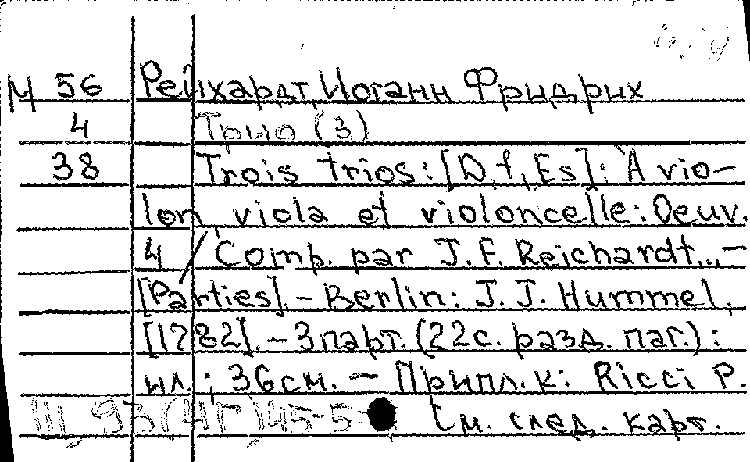 М 56 Рейхардт, Иоганн Фридрих
4 Трио (3)
38 Trois trios: [D, f, Es]: A vio-
lon, viola et violoncelle: Oeuv.
4 / Comp. par J. F. Reichardt... –
[Parties]. – Berlin: J. J. Hummel,
[1782]. – 3 парт. (22 с. разд. паг.):
ил.; 36 см. – Припл. к: Ricci P.
См. след. карт.